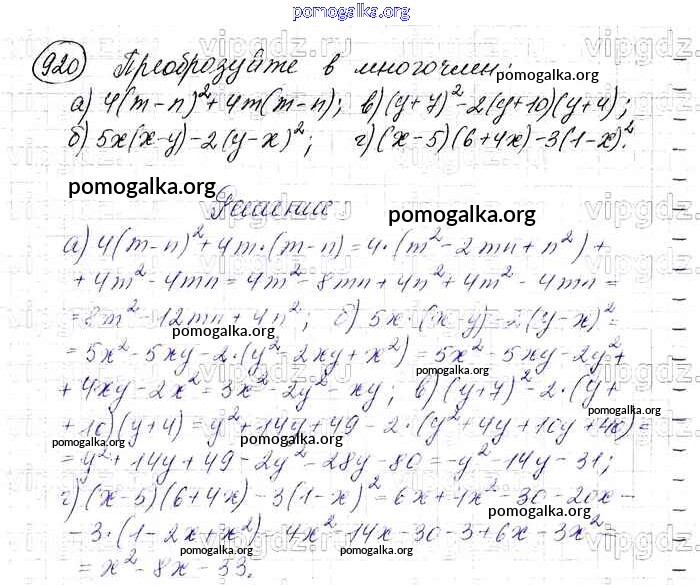 pomogalka.org
920 Преобразуйте в многочлен:
pomogalka.org
а) 4(m-n)²+4m(m-n); в) (y+7)²-2(y+10)(y+4);
б) 5x(x-y)-2(y-x)²; г) (x-5)(6+4x)-3(1-x)².
pomogalka.org
Решение
pomogalka.org
а) 4(m-n)²+4m·(m-n)=4·(m²-2mn+n²)+
+4m²-4mn=4m²-8mn+4n²+4m²-4mn=
=8m²-12mn+4n²; б) 5x·(x-y)-2(y-x)²=
pomogalka.org
=5x²-5xy-2·(y²-2xy+x²)=5x²-5xy-2y²+
pomogalka.org
+4xy-2x²=3x²-2y²-xy; в) (y+7)²-2·(y+
pomogalka.org
+10)(y+4)=y²+14y+49-2·(y²+4y+10y+40)=
pomogalka.org pomogalka.org
=y²+14y+49-2y²-28y-80=-y²-14y-31;
г) (x-5)(6+4x)-3(1-x)²=6x+4x²-30-20x-
pomogalka.org
-3·(1-2x+x²)=4x²-14x-30-3+6x-3x²=
pomogalka.org pomogalka.org
=x²-8x-33.